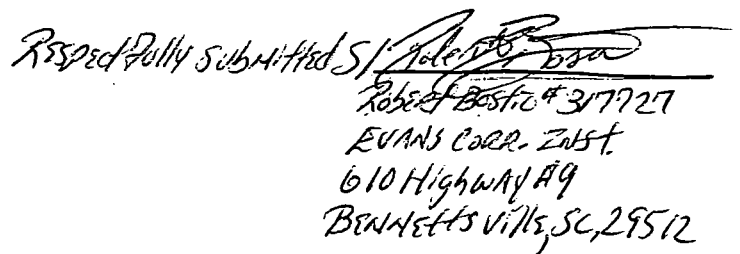 Respectfully submitted S/
Robert Bostic # 317727
EVANS CORR. INST.
610 Highway #9
BENNETTSVILLE, SC, 29512